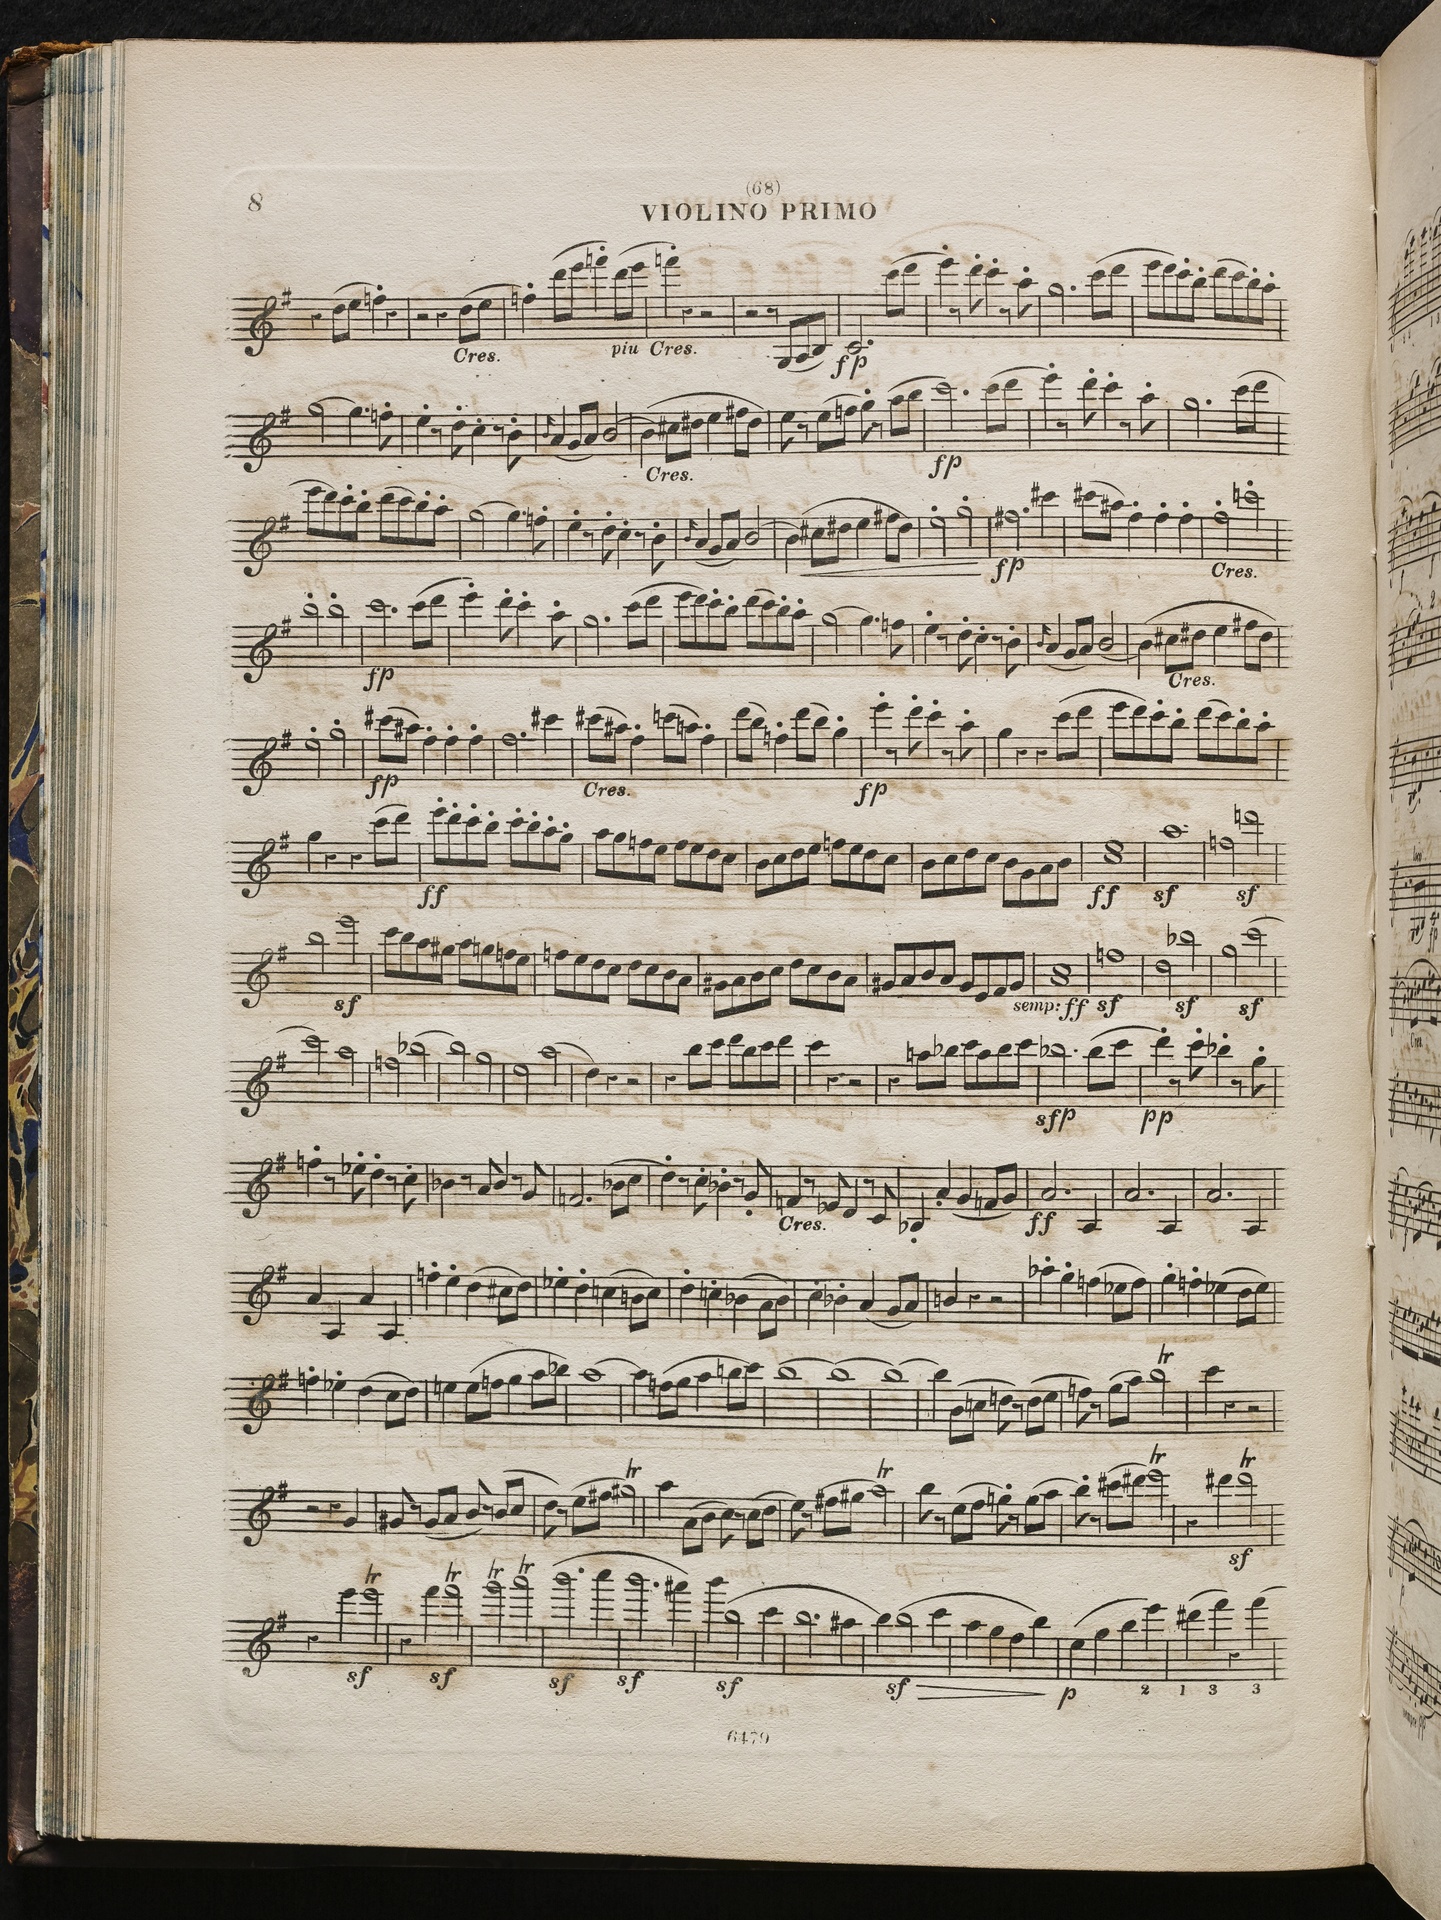 8
(68)
VIOLINO PRIMO
Cres. piu Cres. fp
Cres. fp
fp Cres.
fp Cres.
fp Cres. fp
ff ff sf sf
sf semp: ff sf sf sf
sfp pp
Cres. ff
tr
tr tr tr sf
tr tr tr tr
sf sf sf sf sf sf p 2 1 3 3
6479